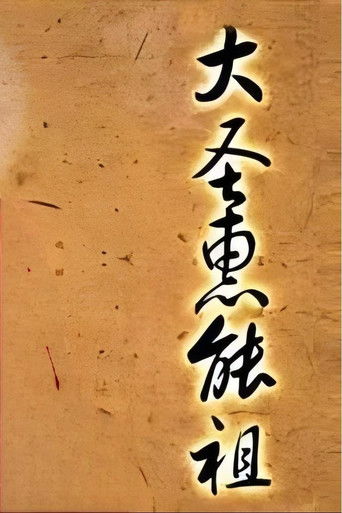 大圣惠能祖